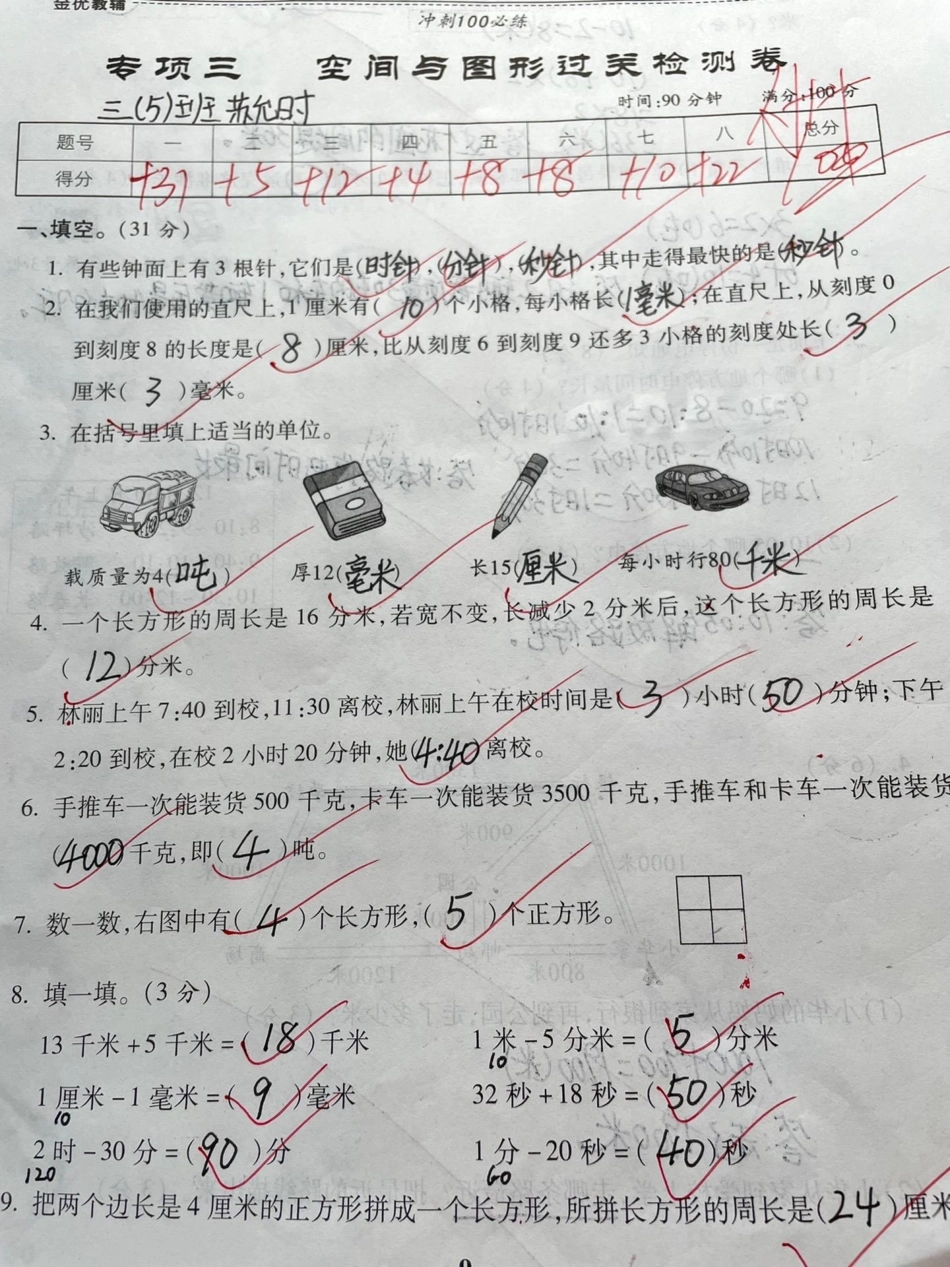 金优教辅
冲刺100必练
专项三 空间与图形过关检测卷
三(5)班 时间:90分钟 满分:100分
题号 一 三 四 五 六 七 八 总分
得分 +31 +5 +12 +4 +8 +8 +10 +22
一、填空。(31分)
1. 有些钟面上有3根针,它们是(时针),(分针),(秒针),其中走得最快的是(秒针)。
2. 在我们使用的直尺上,1厘米有(10)个小格,每小格长(1毫米);在直尺上,从刻度0
到刻度8的长度是(8)厘米,比从刻度6到刻度9还多3小格的刻度处长(3)
厘米(3)毫米。
3. 在括号里填上适当的单位。
载质量为4(吨) 厚12(毫米) 长15(厘米) 每小时行80(千米)
4. 一个长方形的周长是16分米,若宽不变,长减少2分米后,这个长方形的周长是
(12)分米。
5. 林丽上午7:40到校,11:30离校,林丽上午在校时间是(3)小时(50)分钟;下午
2:20到校,在校2小时20分钟,她(4:40)离校。
6. 手推车一次能装货500千克,卡车一次能装货3500千克,手推车和卡车一次能装货
(4000)千克,即(4)吨。
7. 数一数,右图中有(4)个长方形,(5)个正方形。
8. 填一填。(3分)
13千米+5千米=(18)千米 1米-5分米=(5)分米
10
1厘米-1毫米=(9)毫米 32秒+18秒=(50)秒
10
2时-30分=(90)分 1分-20秒=(40)秒
120 60
9. 把两个边长是4厘米的正方形拼成一个长方形,所拼长方形的周长是(24)厘米
9